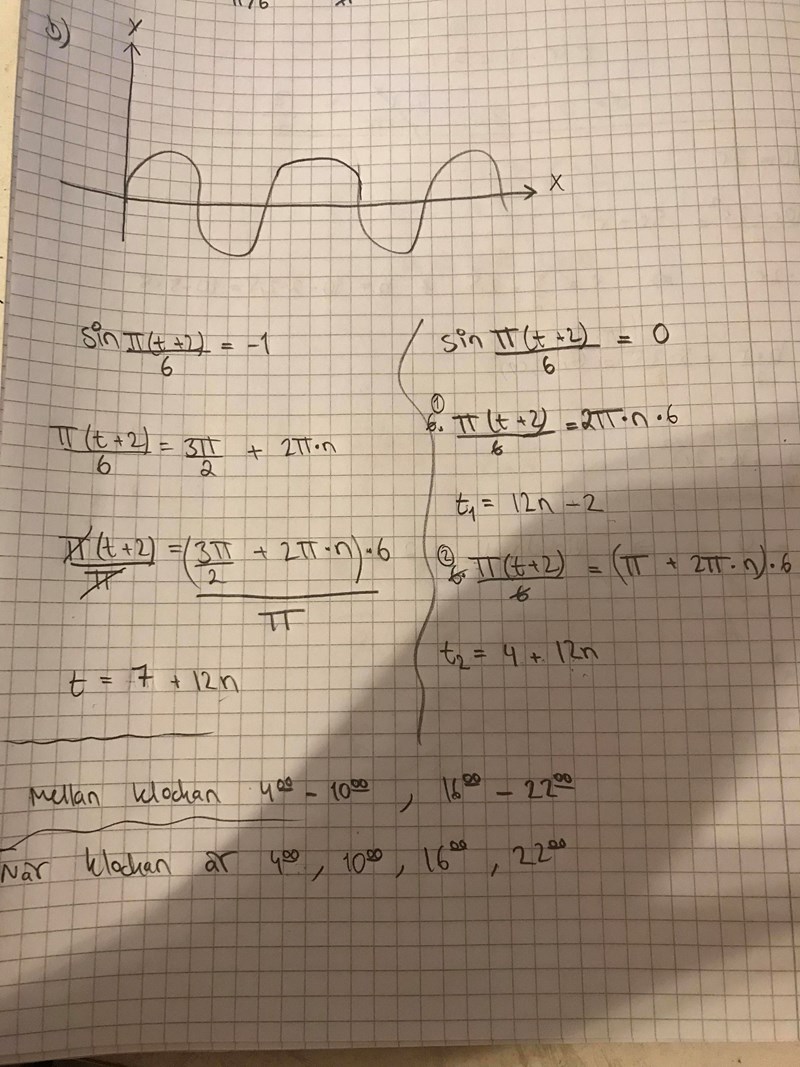 π/6
b)
Y
X
sin π(t+2)/6 = -1
π(t+2)/6 = 3π/2 + 2π·n
π(t+2)/π = (3π/2 + 2π·n)·6/π
t = 7 + 12n
sin π(t+2)/6 = 0
① 6· π(t+2)/6 = 2π·n·6
t₁ = 12n - 2
② 6· π(t+2)/6 = (π + 2π·n)·6
t₂ = 4 + 12n
Mellan klockan 4⁰⁰ - 10⁰⁰, 16⁰⁰ - 22⁰⁰
När klockan är 4⁰⁰, 10⁰⁰, 16⁰⁰, 22⁰⁰